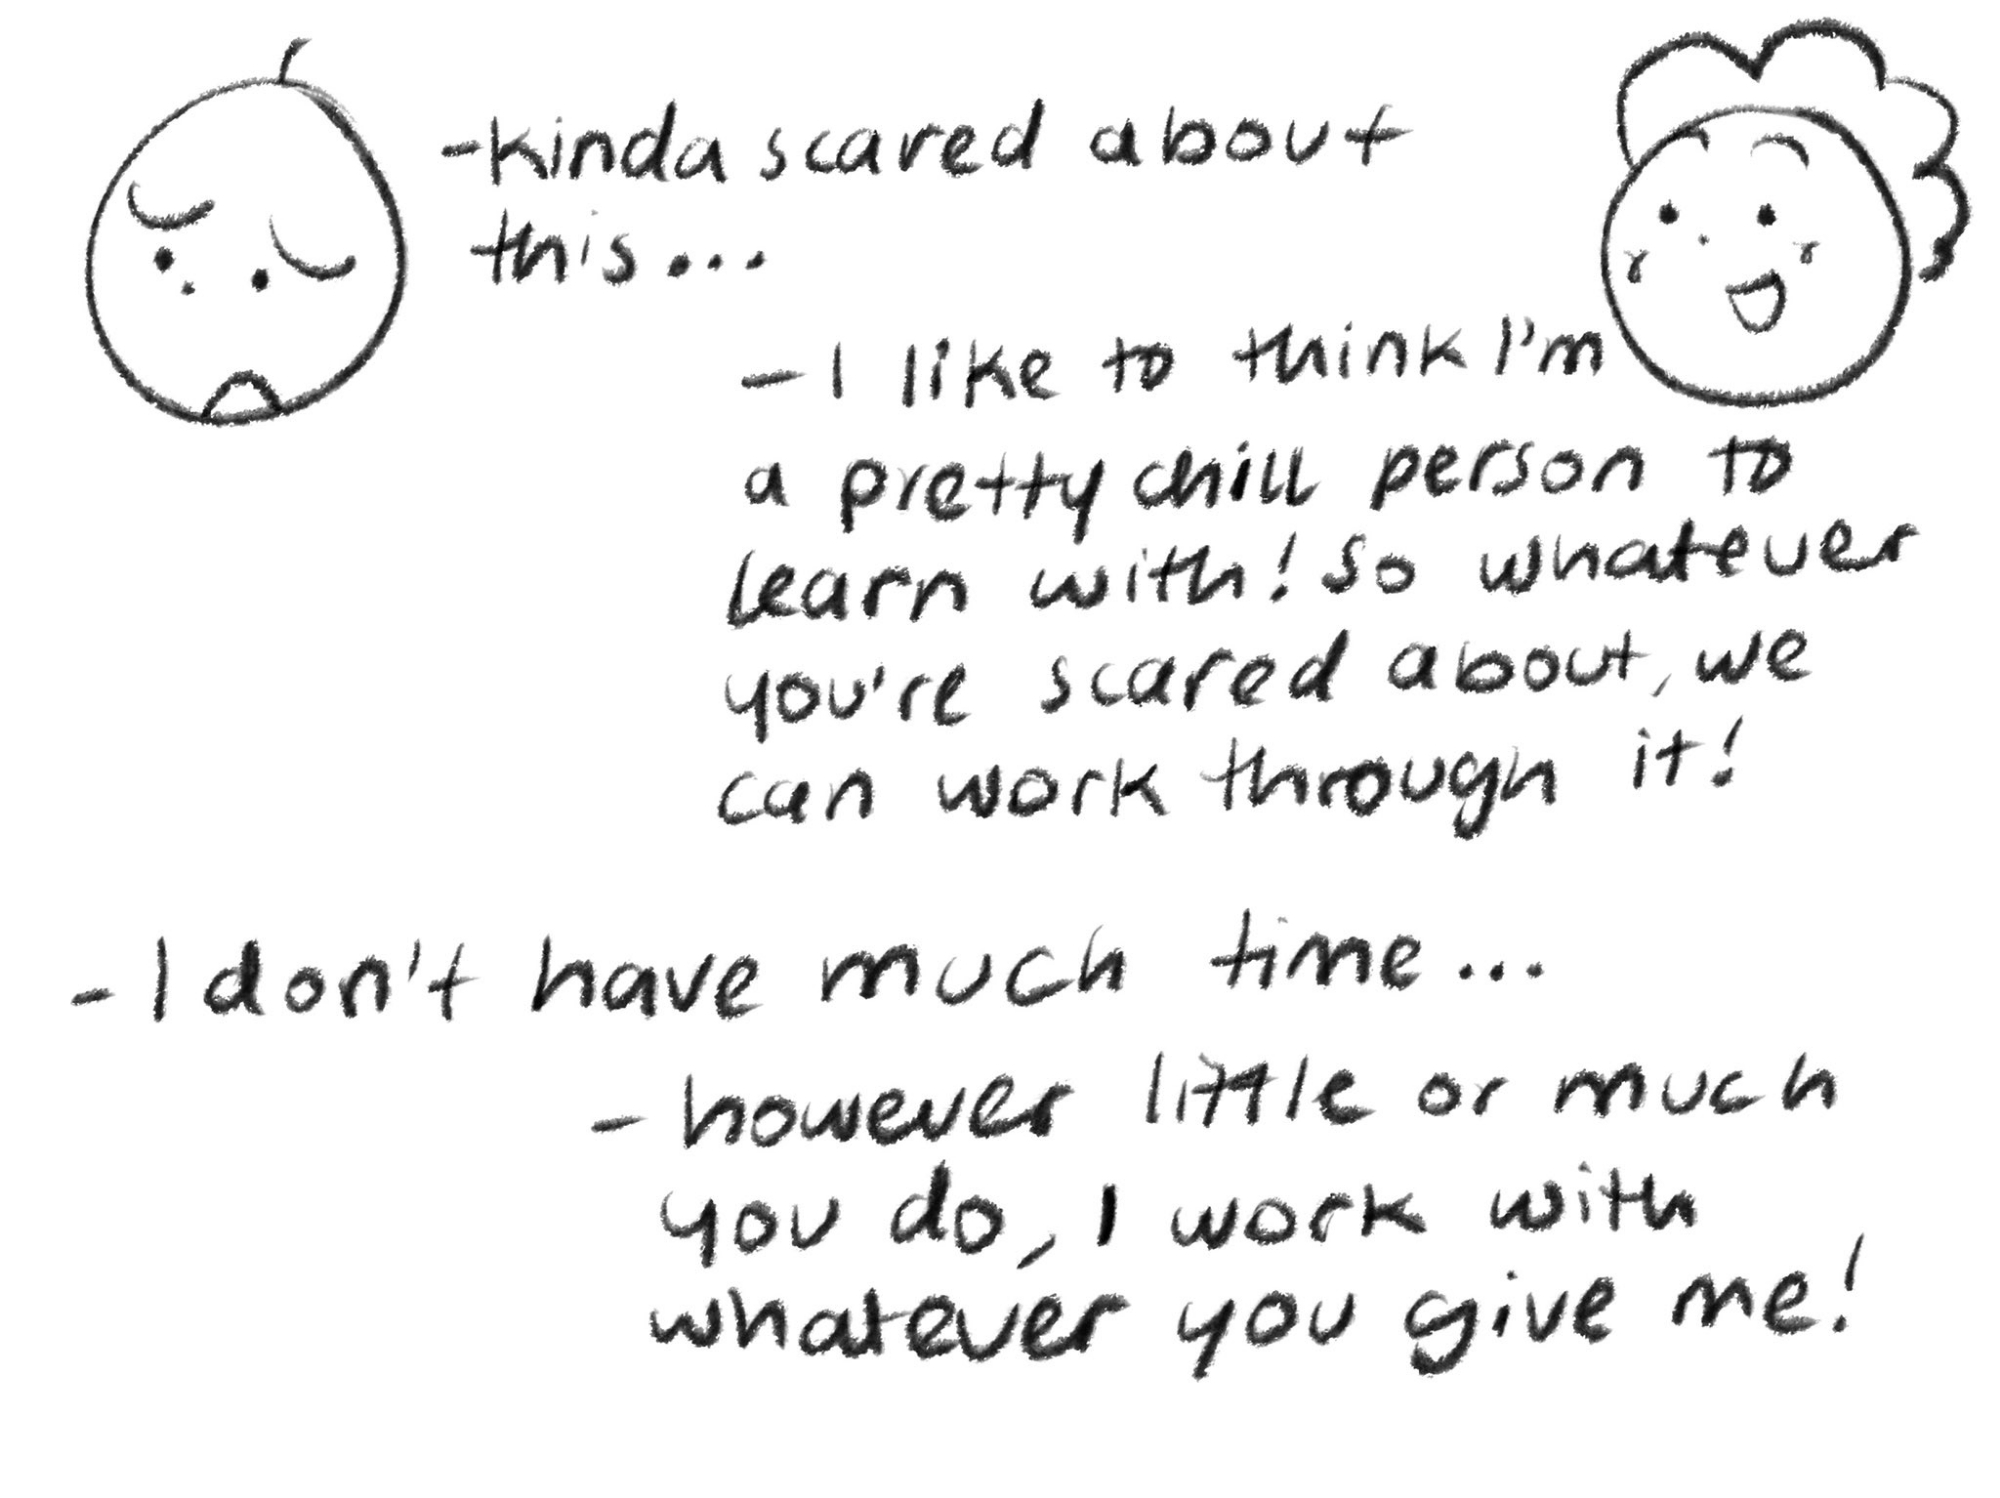 -kinda scared about
this...
-I like to think I'm
a pretty chill person to
learn with! So whatever
you're scared about, we
can work through it!
-I don't have much time...
-however little or much
you do, I work with
whatever you give me!